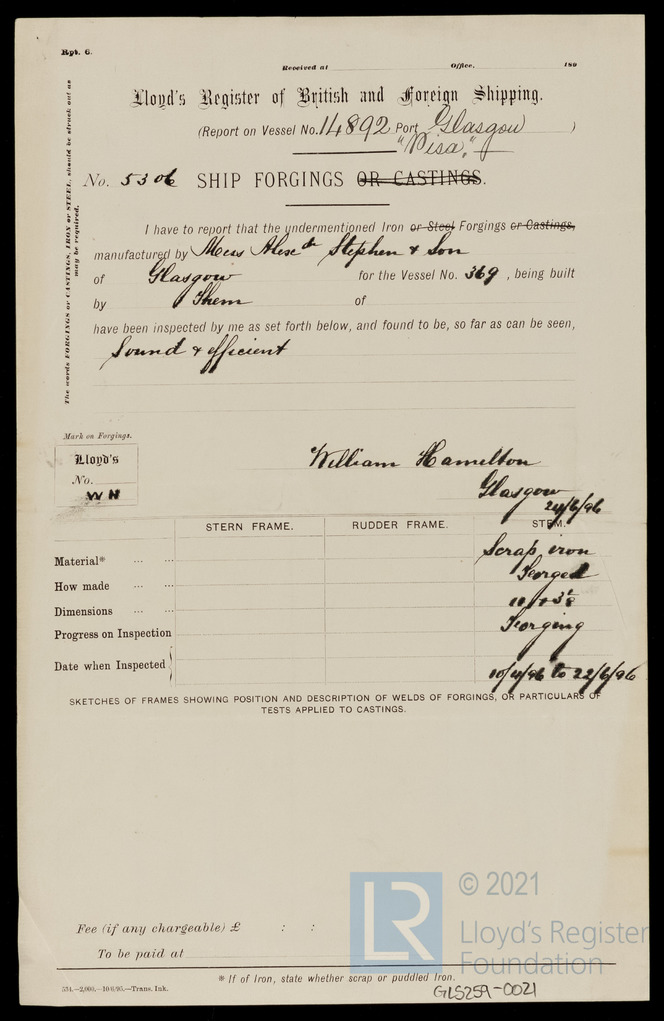 Rpt. 6.
Received at Office, 189
Lloyd's Register of British and Foreign Shipping.
(Report on Vessel No. 14892 Port Glasgow )
"Pisa,"
No. 5306 SHIP FORGINGS OR CASTINGS.
The words FORGINGS or CASTINGS, IRON or STEEL, should be struck out as may be required.
I have to report that the undermentioned Iron or Steel Forgings or Castings,
manufactured by Mess Alexdr Stephen & Son
of Glasgow for the Vessel No. 369, being built
by Them of
have been inspected by me as set forth below, and found to be, so far as can be seen,
Sound & efficient
Mark on Forgings.
Lloyd's
No.
WH
William Hamilton
Glasgow
24/6/96
STERN FRAME. RUDDER FRAME. STEM.
Material* ... ... Scrap iron
How made ... ... Forged
Dimensions ... ...
Progress on Inspection Forging
Date when Inspected 10/4/96 to 22/6/96
SKETCHES OF FRAMES SHOWING POSITION AND DESCRIPTION OF WELDS OF FORGINGS, OR PARTICULARS OF
TESTS APPLIED TO CASTINGS.
Fee (if any chargeable) £ : :
To be paid at
* If of Iron, state whether scrap or puddled Iron.
534.—2,000.—10/6/95.—Trans. Ink.
GLS259-0021
LR
© 2021
Lloyd's Register
Foundation